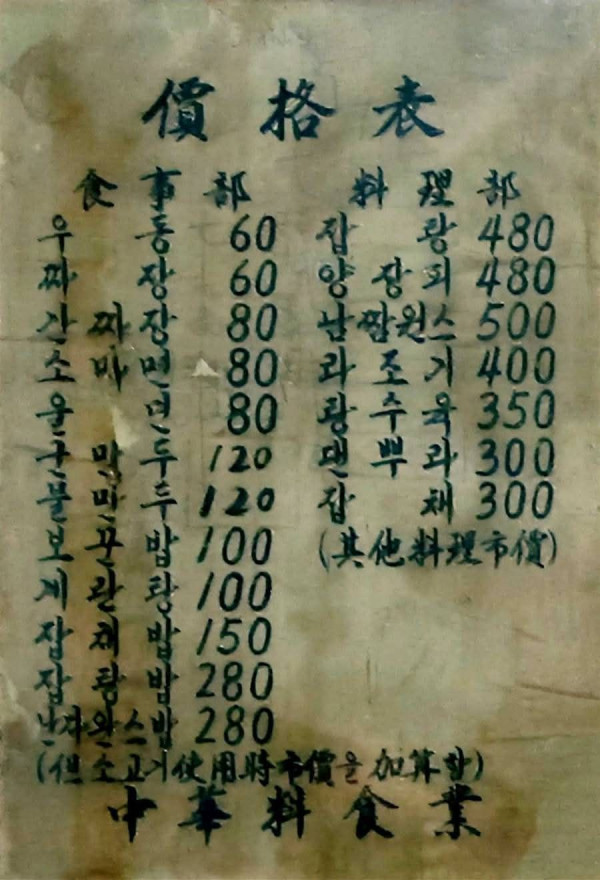 價格表
食事部
우동 60
짜장 60
간짜장 80
소마면 80
울면 80
군만두 120
물만두 120
보꾼밥 100
계란탕 100
잡채밥 150
잡탕밥 280
난자완스밥 280
(但 소고기使用時市價을加算함)
料理部
잡탕 480
양장피 480
남짬원스 500
라조기 400
탕수육 350
댄뿌라 300
잡채 300
(其他料理市價)
中華料食業